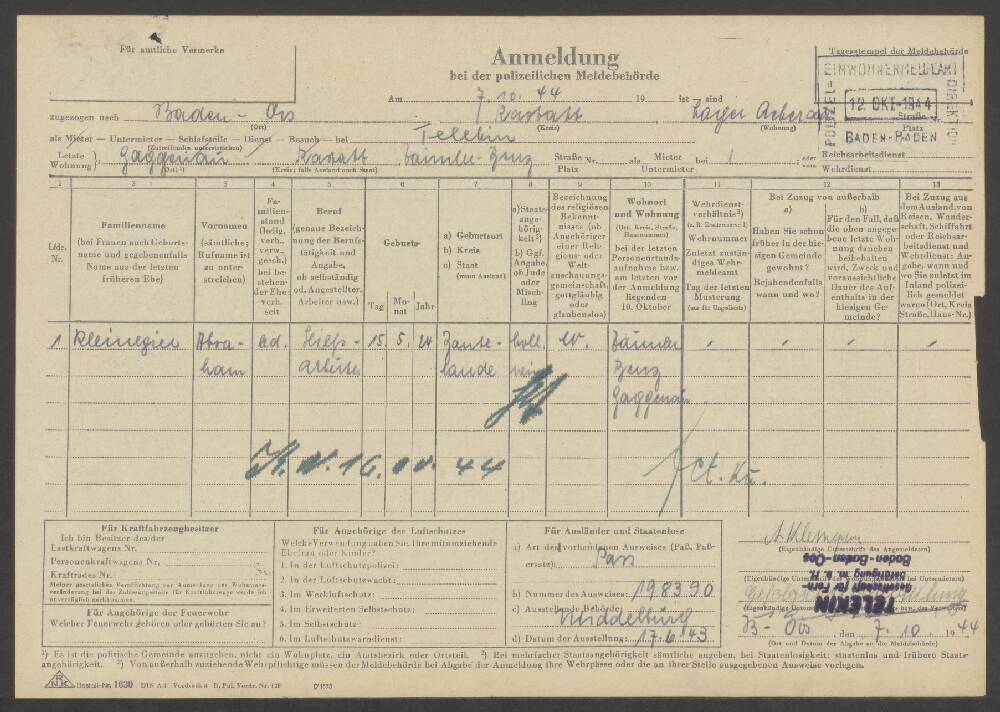 Für amtliche Vermerke
Anmeldung
bei der polizeilichen Meldebehörde
Tagesstempel der Meldebehörde
EINWOHNERMELDEAMT
POLIZEI-
DIREKTION
12. OKT. 1944
BADEN-BADEN
Am 7.10.44 19 ist / sind
zugezogen nach Baden-Oos Rastatt Lager
(Ort) (Kreis) (Wohnung) Straße Nr. Platz
als Mieter — Untermieter — Schlafstelle — Dienst — Besuch — bei Telekin
(Zutreffendes unterstreichen)
Letzte Wohnung: Gaggenau Rastatt Daimler-Benz Straße Nr. Platz als Mieter Untermieter bei / oder vom Reichsarbeitsdienst Wehrdienst
(Ort) ¹) (Kreis; falls Ausland auch Staat)
1 2 3 4 5 6 7 8 9 10 11 12 13
Lfde. Nr.
Familienname
(bei Frauen auch Geburtsname und gegebenenfalls Name aus der letzten früheren Ehe)
Vornamen
(sämtliche; Rufname ist zu unterstreichen)
Familienstand
(ledig, verh., verw., gesch.) bei bestehender Ehe: verh. seit
Beruf
(genaue Bezeichnung der Berufstätigkeit und Angabe, ob selbständig od. Angestellter, Arbeiter usw.)
Geburts-
Tag Monat Jahr
a) Geburtsort
b) Kreis
c) Staat
(wenn Ausland)
a) Staatsangehörigkeit²)
b) Ggf. Angabe, ob Jude oder Mischling
Bezeichnung des religiösen Bekenntnisses (ob Angehöriger einer Religions- oder Weltanschauungsgemeinschaft, gottgläubig oder glaubenslos)
Wohnort und Wohnung
(Ort, Kreis, Straße, Hausnummer)
bei der letzten Personenstandsaufnahme bzw. am letzten vor der Anmeldung liegenden 10. Oktober
Wehrdienstverhältnis³)
Wehrnummer
Zuletzt zuständiges Wehrmeldeamt
Tag der letzten Musterung
(nur für Ungediente)
Bei Zuzug von außerhalb
a) Haben Sie schon früher in der hiesigen Gemeinde gewohnt? Bejahendenfalls wann und wo?
b) Für den Fall, daß die oben angegebene letzte Wohnung daneben beibehalten wird, Zweck und voraussichtliche Dauer des Aufenthalts in der hiesigen Gemeinde?
Bei Zuzug aus dem Ausland, von Reisen, Wanderschaft, Schiffahrt oder Reichsarbeitsdienst und Wehrdienst: Angabe, wann und wo Sie zuletzt im Inland polizeilich gemeldet waren (Ort, Kreis Straße, Haus-Nr.)
1 Kleinepier Abra- led. Hilfs- 15. 5. 24 Zoute- holl. ev. Daimler
ham arbeiter lande nein Benz
Gaggenau
16. 44
Für Kraftfahrzeugbesitzer
Ich bin Besitzer des/der
Lastkraftwagens Nr.
Personenkraftwagens Nr.
Kraftrades Nr.
Meiner gesetzlichen Verpflichtung zur Anmeldung der Wohnungsveränderung bei der Zulassungsstelle für Kraftfahrzeuge werde ich unverzüglich nachkommen.
Für Angehörige der Feuerwehr
Welcher Feuerwehr gehören oder gehörten Sie an?
Für Angehörige des Luftschutzes
Welche Verwendung haben Sie, Ihre mitumziehende Ehefrau oder Kinder?
1. In der Luftschutzpolizei:
2. In der Luftschutzwacht:
3. Im Werkluftschutz:
4. Im Erweiterten Selbstschutz:
5. Im Selbstschutz:
6. Im Luftschutzwarndienst:
Für Ausländer und Staatenlose
a) Art des vorhandenen Ausweises (Paß, Paßersatz): Pass
b) Nummer des Ausweises: 198390
c) Ausstellende Behörde: Middelburg
d) Datum der Ausstellung: 17.6.43
(Eigenhändige Unterschrift des Anmeldenden)
TELEKIN
Gesellschaft für Fern-
betätigung m. b. H.
Baden-Baden-Oos
B-Oos, den 7.10. 1944
(Ort und Datum der Abgabe an die Meldebehörde)
¹) Es ist die politische Gemeinde anzugeben, nicht ein Wohnplatz, ein Amtsbezirk oder Ortsteil. ²) Bei mehrfacher Staatsangehörigkeit sämtliche angeben, bei Staatenlosigkeit: staatenlos und frühere Staatsangehörigkeit. ³) Von außerhalb zuziehende Wehrpflichtige müssen der Meldebehörde bei Abgabe der Anmeldung ihre Wehrpässe oder die an ihrer Stelle ausgegebenen Ausweise vorlegen.
Bestell-Nr. 1630 DIN A 4